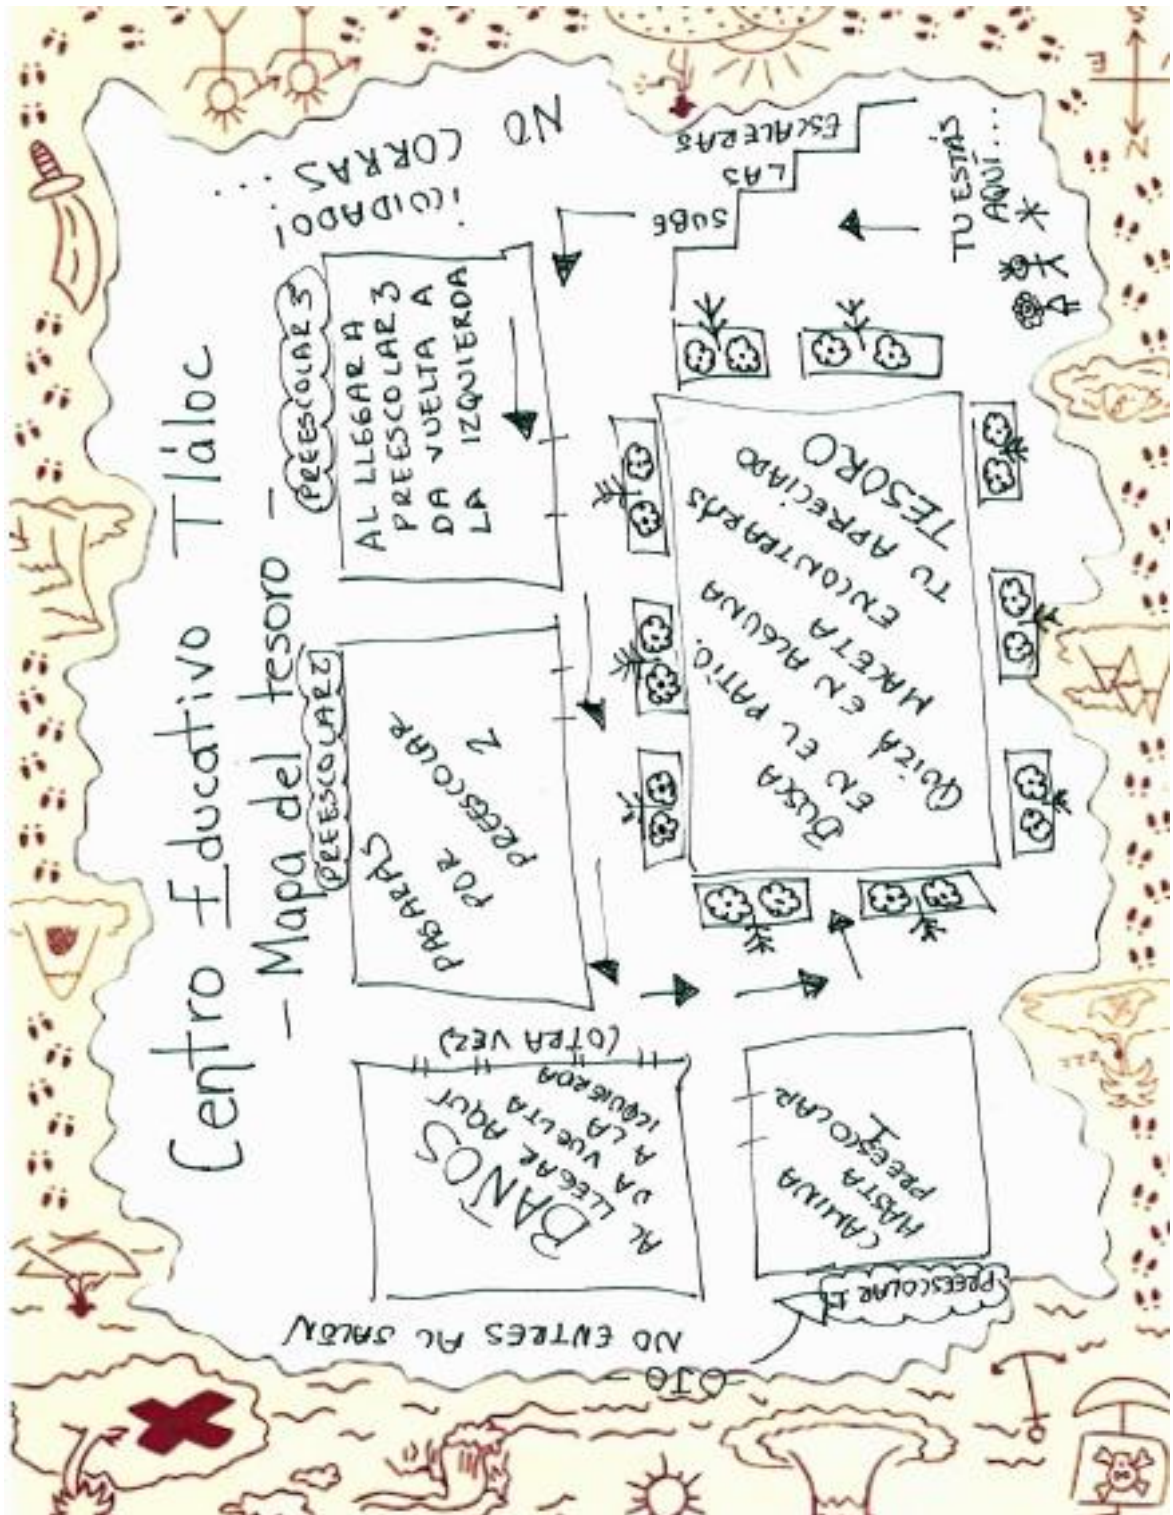 Centro Educativo Tláloc
- Mapa del tesoro -
TU ESTÁS
AQUÍ...
SUBE
LAS
ESCALERAS
¡CUIDADO!
NO CORRAS ...
PREESCOLAR 3
AL LLEGAR A
PREESCOLAR 3
DA VUELTA A
LA IZQUIERDA
PREESCOLAR 2
PASARÁS
POR
PREESCOLAR
2
BAÑOS
AL LLEGAR AQUÍ
DA VUELTA
A LA
IZQUIERDA
(OTRA VEZ)
CAMINA
HASTA
PREESCOLAR
1
PREESCOLAR 1
-OJO-
NO ENTRES AL SALÓN
BUSCA
EN EL PATIO.
QUIZÁ EN ALGUNA
MACETA
ENCONTRARÁS
TU APRECIADO
TESORO
E
N
S